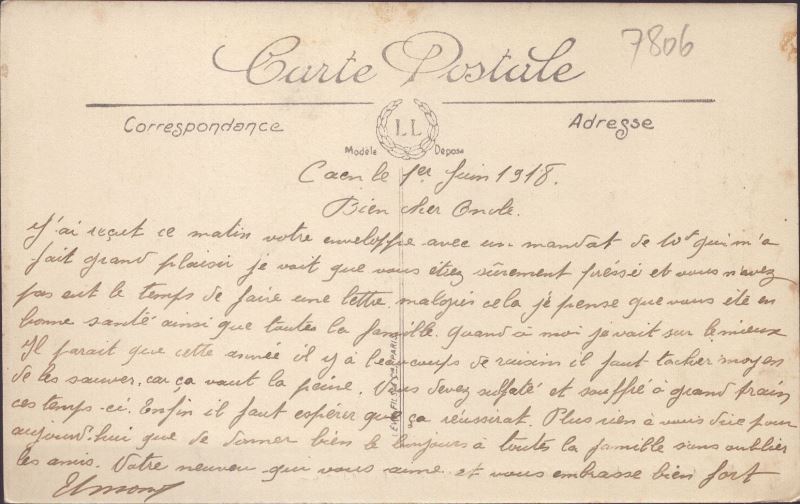 7806
Carte Postale
Correspondance
Adresse
LL
Modèle Déposé
Caen le 1er Juin 1918.
Bien cher Oncle.
J'ai reçut ce matin votre enveloppe avec un mandat de 10f qui m'a
fait grand plaisir je vait que vous étiez sûrement préssé et vous n'avez
pas eut le temps de faire une lettre malgrés cela je pense que vous été en
bonne santé ainsi que toutes la famille. quand à moi je vait sur le mieux
Il parait que cette année il y à beaucoups de raisins il faut tacher moyen
de les sauver, car ça vaut la peine. Vous devez sulfaté et souffré à grand train
ces temps-ci. Enfin il faut espérer que ça réussirat. Plus rien à vous dire pour
aujourd.hui que de donner bien le bonjours à toutes la famille sans oublier
les amis. Votre neuveu qui vous aime et vous embrasse bien fort